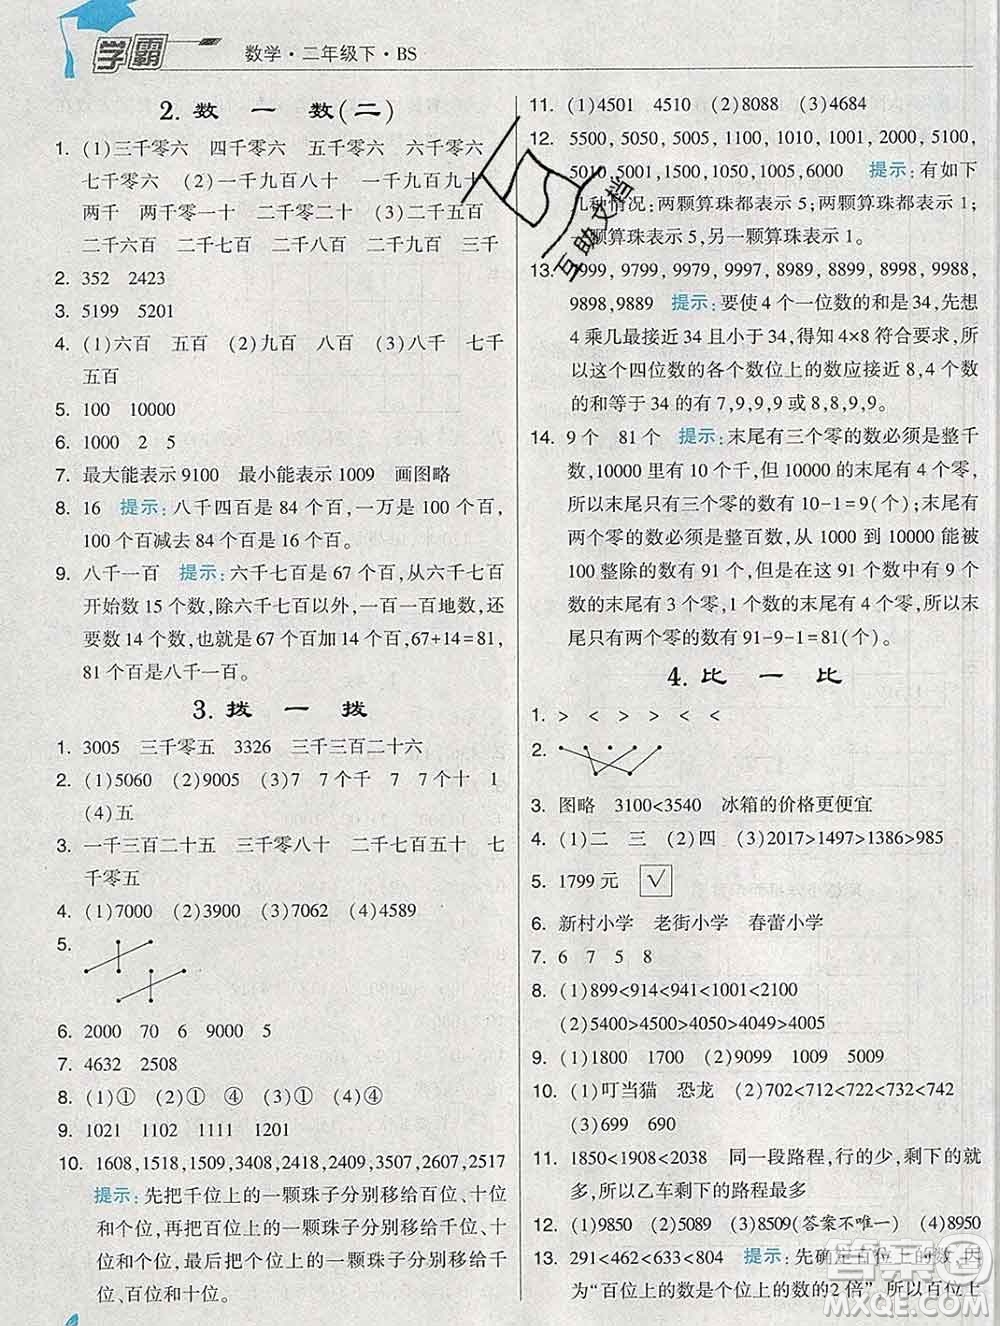 学霸
数学·二年级下·BS
2. 数 一 数(二)
1. (1)三千零六 四千零六 五千零六 六千零六
七千零六 (2)一千九百八十 一千九百九十
两千 两千零一十 二千零二十 (3)二千五百
二千六百 二千七百 二千八百 二千九百 三千
2. 352 2423
3. 5199 5201
4. (1)六百 五百 (2)九百 八百 (3)八千 七千
五百
5. 100 10000
6. 1000 2 5
7. 最大能表示 9100 最小能表示 1009 画图略
8. 16 提示:八千四百是 84 个百,一万是 100 个百,
100 个百减去 84 个百是 16 个百。
9. 八千一百 提示:六千七百是 67 个百,从六千七百
开始数 15 个数,除六千七百以外,一百一百地数,还
要数 14 个数,也就是 67 个百加 14 个百,67+14=81,
81 个百是八千一百。
3. 拨 一 拨
1. 3005 三千零五 3326 三千三百二十六
2. (1)5060 (2)9005 (3)7 7 个千 7 7 个十 1
(4)五
3. 一千三百二十 三千零八十 二千七百五十 七
千零五
4. (1)7000 (2)3900 (3)7062 (4)4589
5.
6. 2000 70 6 9000 5
7. 4632 2508
8. (1)① (2)① ④ (3)① (4)④
9. 1021 1102 1111 1201
10. 1608,1518,1509,3408,2418,2409,3507,2607,2517
提示:先把千位上的一颗珠子分别移给百位、十位
和个位,再把百位上的一颗珠子分别移给千位、十
位和个位,最后把个位上的一颗珠子分别移给千
位、百位和十位。
11. (1)4501 4510 (2)8088 (3)4684
12. 5500, 5050, 5005, 1100, 1010, 1001, 2000, 5100,
5010,5001,1500,1050,1005,6000 提示:有如下
几种情况:两颗算珠都表示 5;两颗算珠都表示 1;
一颗算珠表示 5,另一颗算珠表示 1。
13. 7999, 9799, 9979, 9997, 8899, 8989, 8998, 9988,
9898,9889 提示:要使 4 个一位数的和是 34,先想
4 乘几最接近 34 且小于 34,得知 4×8 符合要求,所
以这个四位数的各个数位上的数应接近 8,4 个数
的和等于 34 的有 7,9,9,9 或 8,8,9,9。
14. 9 个 81 个 提示:末尾有三个零的数必须是整千
数,10000 里有 10 个千,但 10000 的末尾有 4 个零,
所以末尾只有三个零的数有 10-1=9(个);末尾有
两个零的数必须是整百数,从 1000 到 10000 能被
100 整除的数有 91 个,但是在这 91 个数中有 9 个
数的末尾有 3 个零,1 个数的末尾有 4 个零,所以末
尾只有两个零的数有 91-9-1=81(个)。
4. 比 一 比
1. > < < > < <
2.
3. 图略 3100<3540 冰箱的价格更便宜
4. (1)二 三 (2)四 (3)2017>1497>1386>985
5. 1799 元 √
6. 新村小学 老街小学 春蕾小学
7. 6 7 5 8
8. (1)899<914<989<998
(2)5400>4500>4050>4005
9. (1)1800 1700 (2)9099 1009 5009
10. (1)叮当猫 恐龙 (2)702<712<722<732<742
(3)699 690
11. 1850<1908<2038 同一段路程,行的少,剩下的就
多,所以乙车剩下的路程最多
12. (1)9850 (2)5089 (3)8509(答案不唯一) (4)8950
13. 291<462<633<804 提示:先确定百位上的数,因
为“百位上的数是个位上的数的2倍”,所以百位上
互助文档
答案圈
MXQE.COM